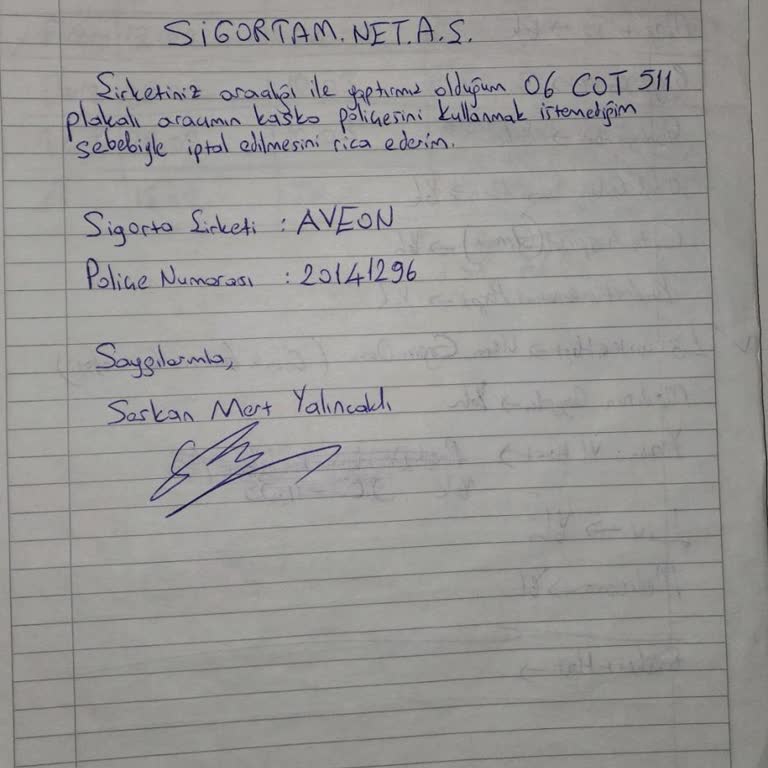 SİGORTAM.NET.A.Ş.
Şirketiniz aracılığı ile yaptırmış olduğum 06 COT 511
plakalı aracımın kasko poliçesini kullanmak istemediğim
sebebiyle iptal edilmesini rica ederim.
Sigorta Şirketi : AVEON
Poliçe Numarası : 20141296
Saygılarımla,
Serkan Mert Yalıncaklı